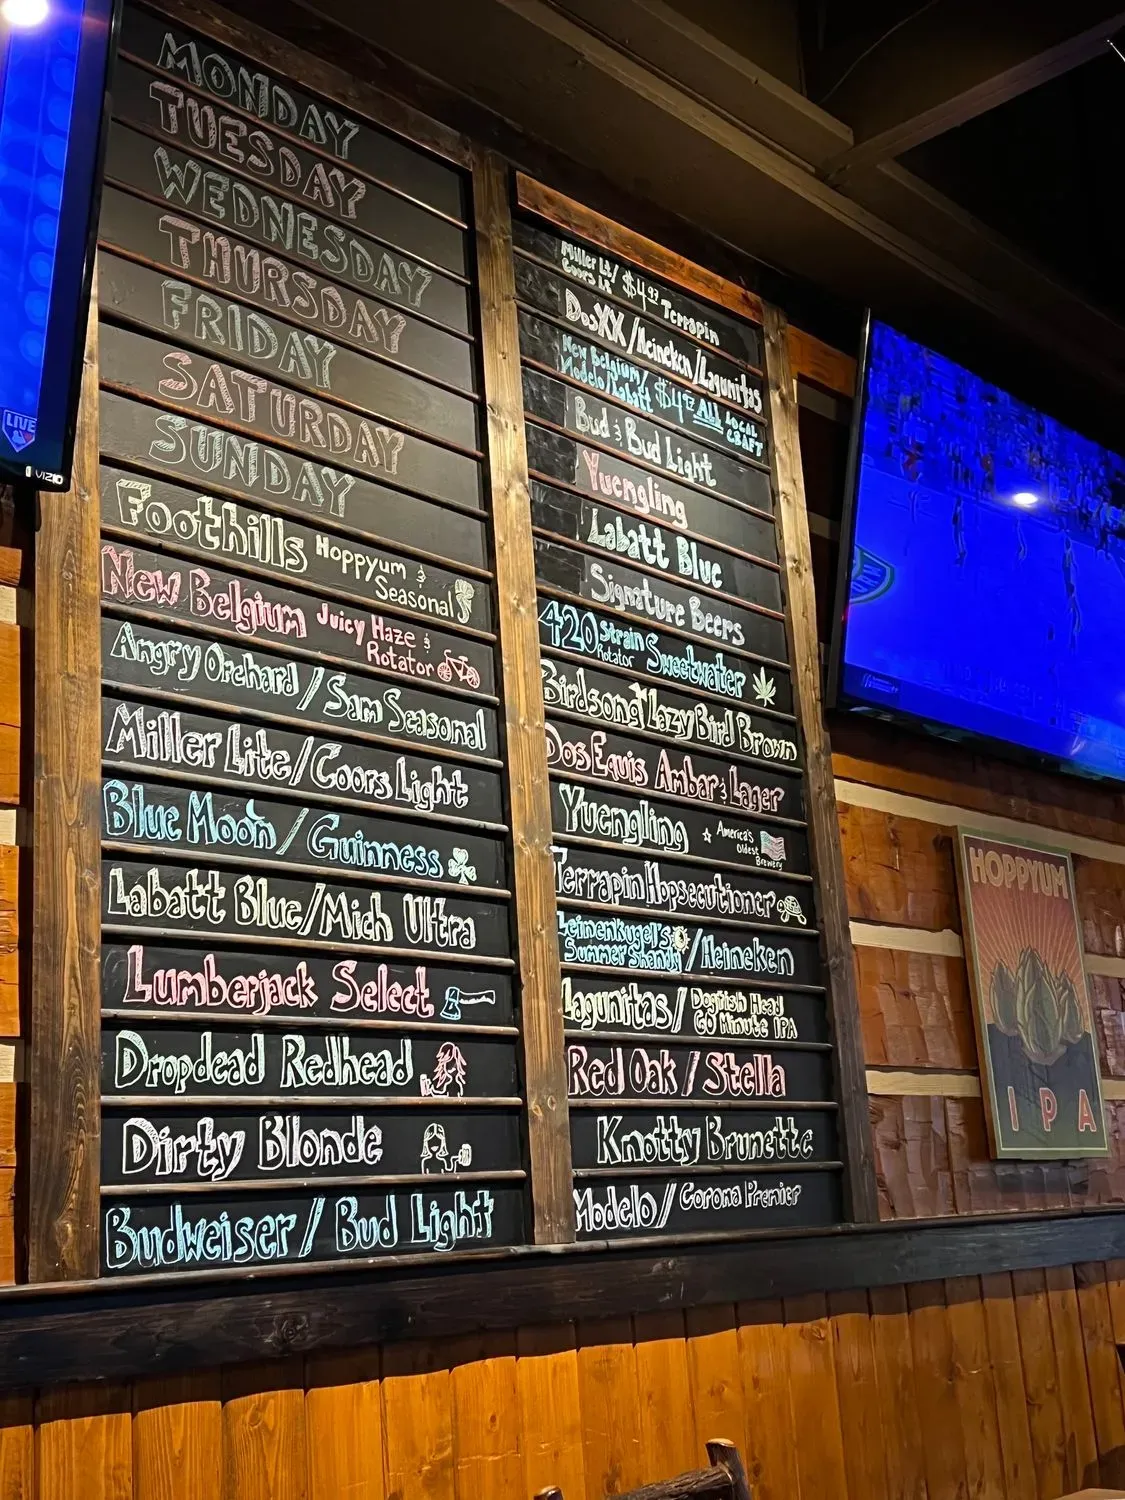 MONDAY
TUESDAY
WEDNESDAY
THURSDAY
FRIDAY
SATURDAY
SUNDAY
Foothills Hoppyum &
Seasonal
New Belgium Juicy Haze &
Rotator
Angry Orchard / Sam Seasonal
Miller Lite / Coors Light
Blue Moon / Guinness
Labatt Blue / Mich Ultra
Lumberjack Select
Dropdead Redhead
Dirty Blonde
Budweiser / Bud Light
Miller Lt /
Coors Lt $4.99 Terrapin
DosXX / Heineken / Lagunitas
New Belgium /
Modelo / Labatt $4 ALL LOCAL
CRAFT
Bud & Bud Light
Yuengling
Labatt Blue
Signature Beers
420 Strain
Rotator Sweetwater
Birdsong Lazy Bird Brown
Dos Equis Ambar & Lager
Yuengling America's
Oldest
Brewery
Terrapin Hopsecutioner
Leinenkugel's
Summer Shandy / Heineken
Lagunitas / Dogfish Head
60 Minute IPA
Red Oak / Stella
Knotty Brunette
Modelo / Corona Premier
LIVE
VIZIO
HOPPYUM
IPA